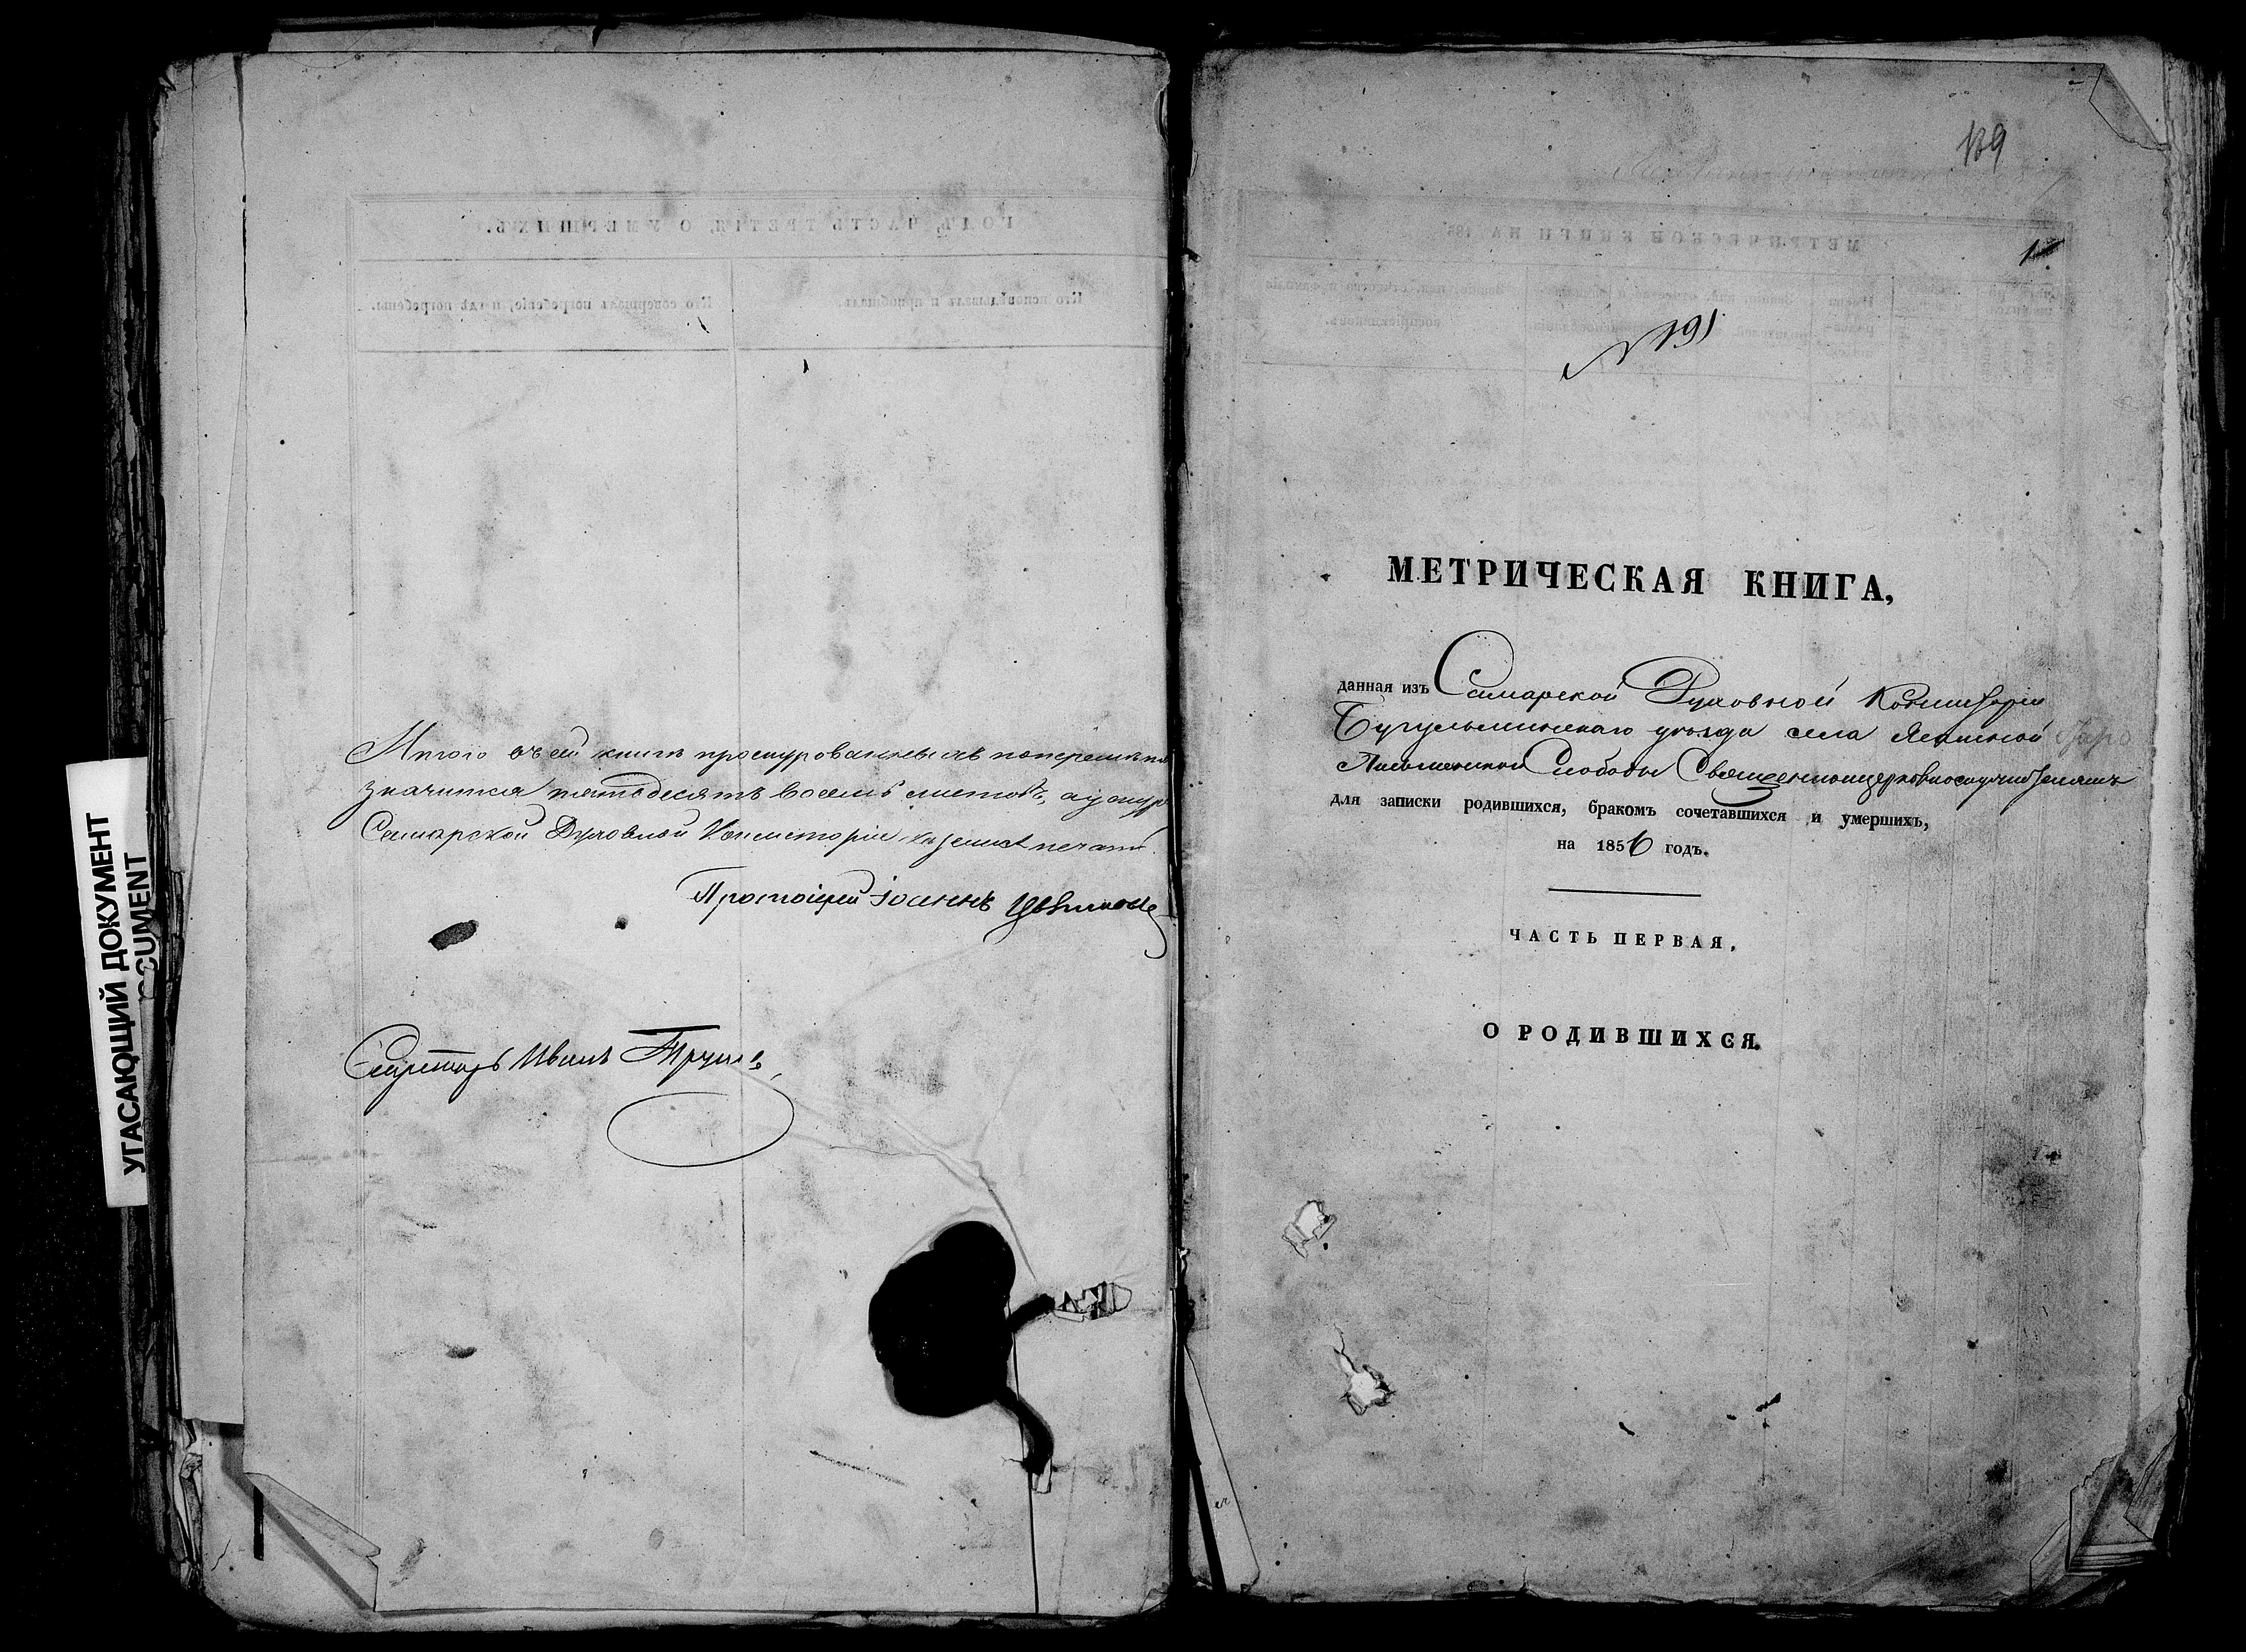 Итого въ сей книгѣ прошнурованныхъ
значится пятьдесятъ восемь листовъ, а у
Самарской Духовной Консисторіи печать.
Протоіерей Іоаннъ
Секретарь Иванъ
УГАСАЮЩИЙ ДОКУМЕНТ
DOCUMENT
139
1
№ 191
МЕТРИЧЕСКАЯ КНИГА,
данная изъ Самарской Духовной Консисторіи
Бугульминскаго уѣзда села Ямашной
Письмянской Слободы Священноцерковнослужителямъ
для записки родившихся, бракомъ сочетавшихся и умершихъ,
на 1856 годъ.
ЧАСТЬ ПЕРВАЯ,
О РОДИВШИХСЯ.